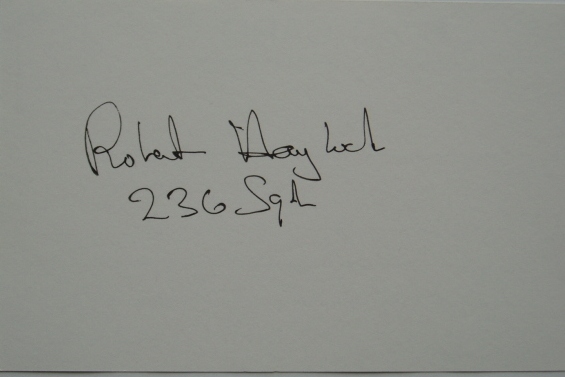 Robert Haylock
236 Sqn